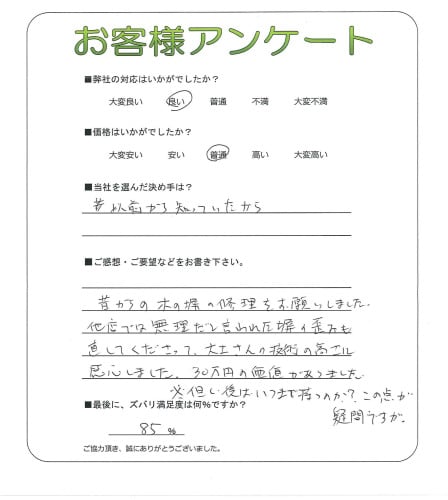 お客様アンケート
■弊社の対応はいかがでしたか?
大変良い 良い 普通 不満 大変不満
■価格はいかがでしたか?
大変安い 安い 普通 高い 大変高い
■当社を選んだ決め手は?
昔以前から知っていたから
■ご感想・ご要望などをお書き下さい。
昔からの木の塀の修理をお願いしました。
他店では無理だと言われた塀の歪みも
直してくださって、大工さんの技術の高さに
感心しました。30万円の価値がありました。
※但し後はいつまで持つのか?この点が
疑問ですが。
■最後に、ズバリ満足度は何%ですか?
85 %
ご協力頂き、誠にありがとうございました。